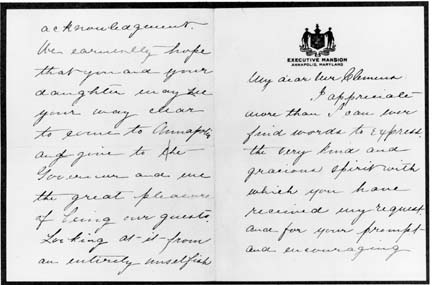 EXECUTIVE MANSION
ANNAPOLIS, MARYLAND
My dear Mr Clemens
I appreciate
more than I can ever
find words to express
the very kind and
gracious spirit with
which you have
received my request
and for your prompt
and encouraging
acknowledgement.
We earnestly hope
that you and your
daughter may see
your way clear
to come to Annapolis
and give to the
Governor and me
the great pleasure
of being our guests.
Looking at it from
an entirely unselfish